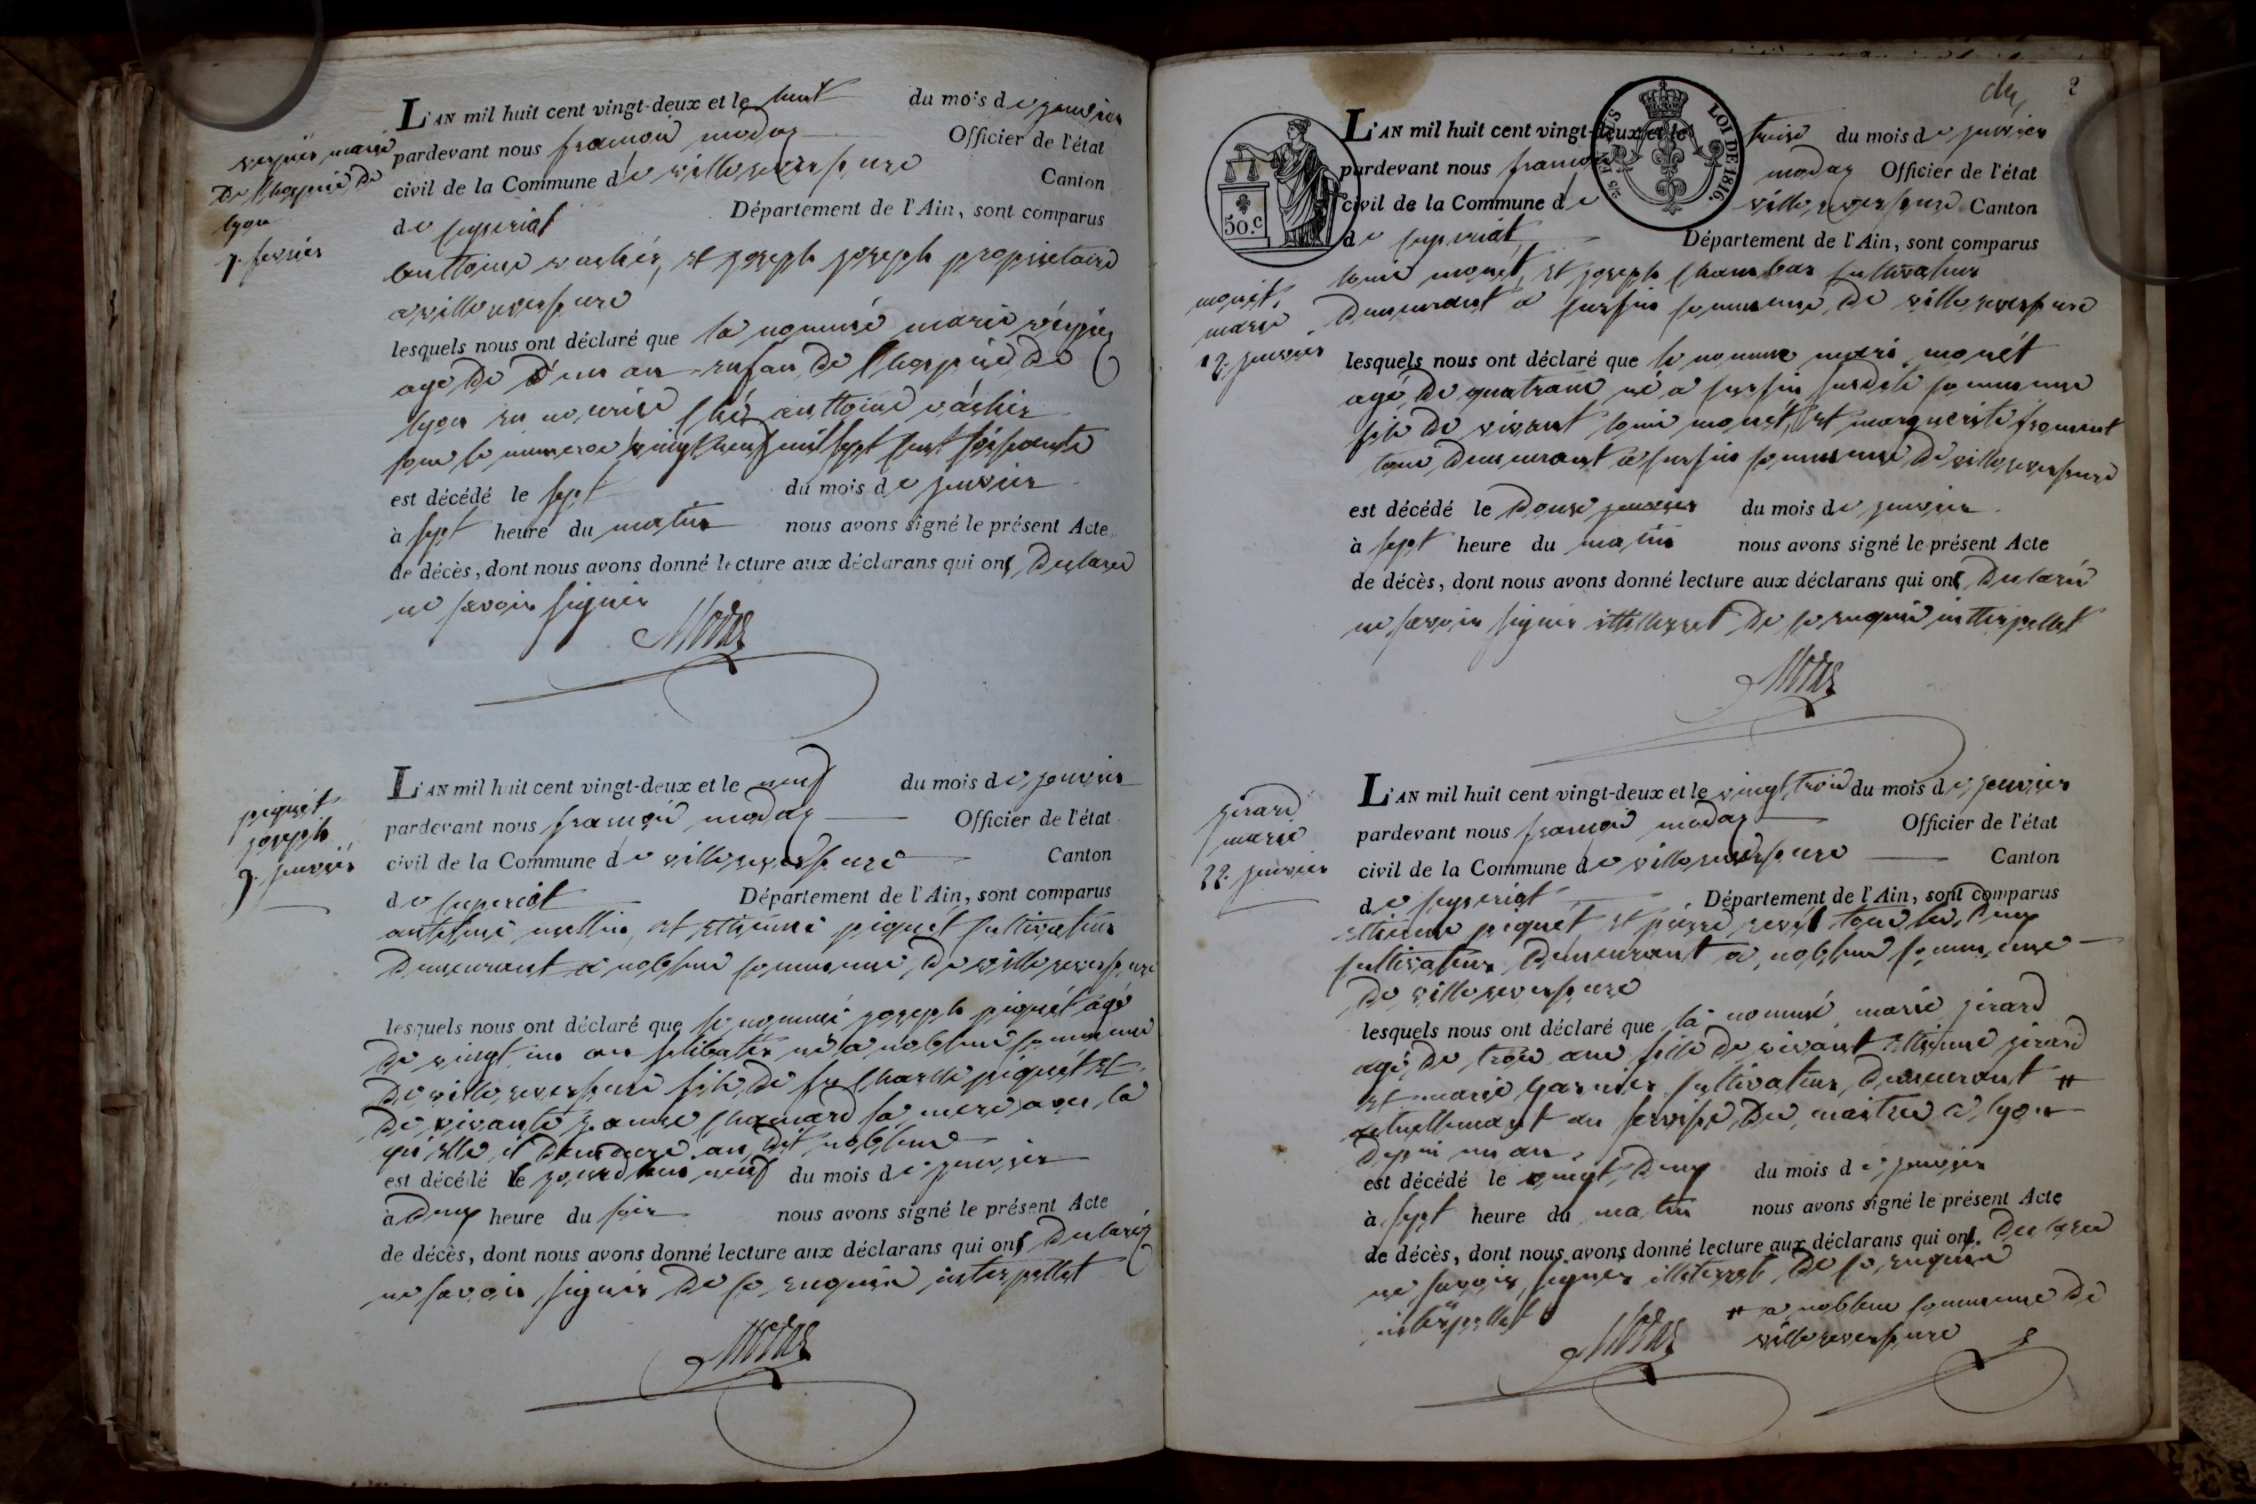 verpiez marie
de l'hospice de
lyon
7. janvier
L'AN mil huit cent vingt-deux et le huit du mois de janvier
pardevant nous francois modas Officier de l'état
civil de la Commune de villereversure Canton
de ceyseriat Département de l'Ain, sont comparus
anttoine vachér, et joseph joseph proprietaire
a villereversure
lesquels nous ont déclaré que la nommé marie
age de d'un an enfan de l'hospice de
lyon en nourise chéz anttoine vâchér
sous le numeroe vingt neuf mil sept cent soisante
est décédé le sept du mois de janvier
à sept heure du matin nous avons signé le présent Acte
de décès, dont nous avons donné lecture aux déclarans qui ont declaré
ne savoir signér
Modas
piquét
joseph
9. janviér
L'AN mil huit cent vingt-deux et le neuf du mois de janvier
pardevant nous francois modas Officier de l'état
civil de la Commune de villereversure Canton
de ceyseriat Département de l'Ain, sont comparus
anthelme et ettienne piquet cultivateur
demeurant a noblens commune, de villereversure
lesquels nous ont déclaré que le nommé joseph piquét agé
de vingt un an selibatér né a noblens commune
de villereversure fils de fu charlle piquét et
de vivante jeanne sa mere avec la
qu'elle il demeure au dit noblens
est décédé le jourdhui neuf du mois de janvier
à deux heure du soir nous avons signé le présent Acte
de décès, dont nous avons donné lecture aux déclarans qui ont declaréz
ne savoir signér de ce enquis intterpellet
Modas
2
L'AN mil huit cent vingt-deux et le treise du mois de janvier
pardevant nous francois modas Officier de l'état
civil de la Commune de villereversure Canton
de ceyseriat Département de l'Ain, sont comparus
50.c
LOI DE 1816.
monét,
marie
12. janvier
louis monét, et joseph chambar cultivateur
demeurant a commune, de villereversure
lesquels nous ont déclaré que le nomme marie monét
agé de quatrans né a susdite commune
fils de vivant louis monet, et marguerite froment
tous demeurant a commune de villereversure
est décédé le douse janvier du mois de janvier
à sept heure du matin nous avons signé le présent Acte
de décès, dont nous avons donné lecture aux déclarans qui ont declarér
ne savoir signér de ce enquis intterpellet
Modas
girard
marie
22. janvier
L'AN mil huit cent vingt-deux et le vingt trois du mois de janvier
pardevant nous francois modas Officier de l'état
civil de la Commune de villereversure Canton
de ceyseriat Département de l'Ain, sont comparus
ettienne piquet et pierre revel tous les deux
cultivateur demeurant a noblens commune
de villereversure
lesquels nous ont déclaré que la nommé marie girard
agé de trois ans fille de vivant ettienne girard
et marie garnier cultivateur demeurant #
actuellemant au servise de maitre a lyon
depuis un an,
est décédé le vingt deux du mois de janvier
à sept heure du matin nous avons signé le présent Acte
de décès, dont nous avons donné lecture aux déclarans qui ont. declaré
ne savoir signér de ce enquis
intterpellet
# a noblens commune de
villereversure
Modas